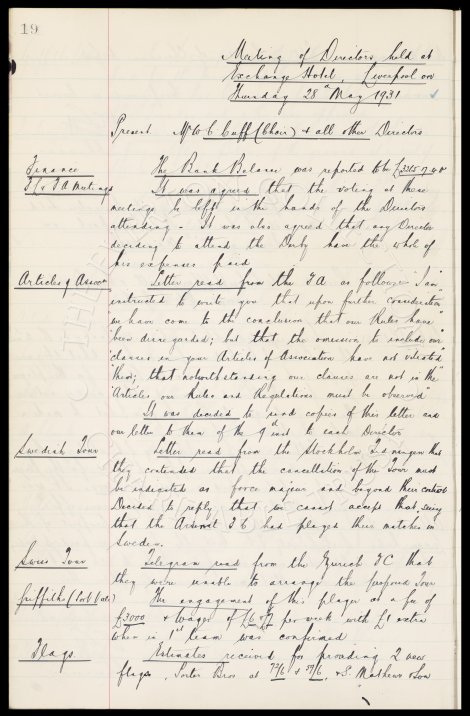 19
Meeting of Directors held at
Exchange Hotel, Liverpool on
Thursday 28th May 1931
Present Mr W C Cuff (Chair) & all other Directors
Finance
The Bank Balance was reported to be £3365
FL & FA Meetings
It was agreed that the voting at these
meetings be left in the hands of the Directors
attending - It was also agreed that any Director
deciding to attend the Derby have the whole of
his expenses paid
Articles of Assocn
Letter read from the FA as follows:- "I am"
"instructed to write you that upon further consideration"
"we have come to the conclusion that our Rules have"
"been disregarded; but that the omission to include our"
"clauses in your Articles of Association have not vitiated"
"them; that notwithstanding our clauses are not in the"
"Articles, our Rules and Regulations must be observed"
It was decided to send copies of this letter and
our letter to them of the 9 inst to each Director
Swedish Tour
Letter read from the Stockholm that
they contended that the cancellation of the Tour must
be indicated as force majeur and beyond their control
Decided to reply that we cannot accept that, seeing
that the Arsenal F C had played their matches in
Sweden.
Swiss Tour
Telegram read from the Zurich FC that
they were unable to arrange the proposed Tour
Griffiths (Port Vale)
The engagement of this player at a fee of
£3000 & wages of £6 per week with £1 extra
when in 1st team was confirmed
Flags
Estimates received for providing 2 new
flags, Porter Bros. at 72/6 & 57/6, & S. Mathews & Son